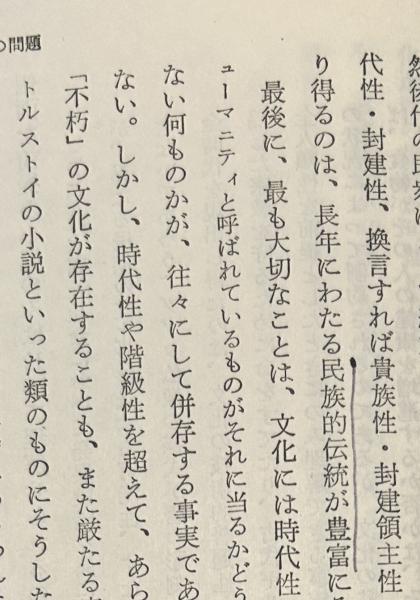 の問題
代性・封建性、換言すれば貴族性・封建領主性
り得るのは、長年にわたる民族的伝統が豊富に
最後に、最も大切なことは、文化には時代性
ューマニティと呼ばれているものがそれに当るかどう
ない何ものかが、往々にして併存する事実であ
ない。しかし、時代性や階級性を超えて、あら
「不朽」の文化が存在することも、また厳たる
トルストイの小説といった類のものにそうした